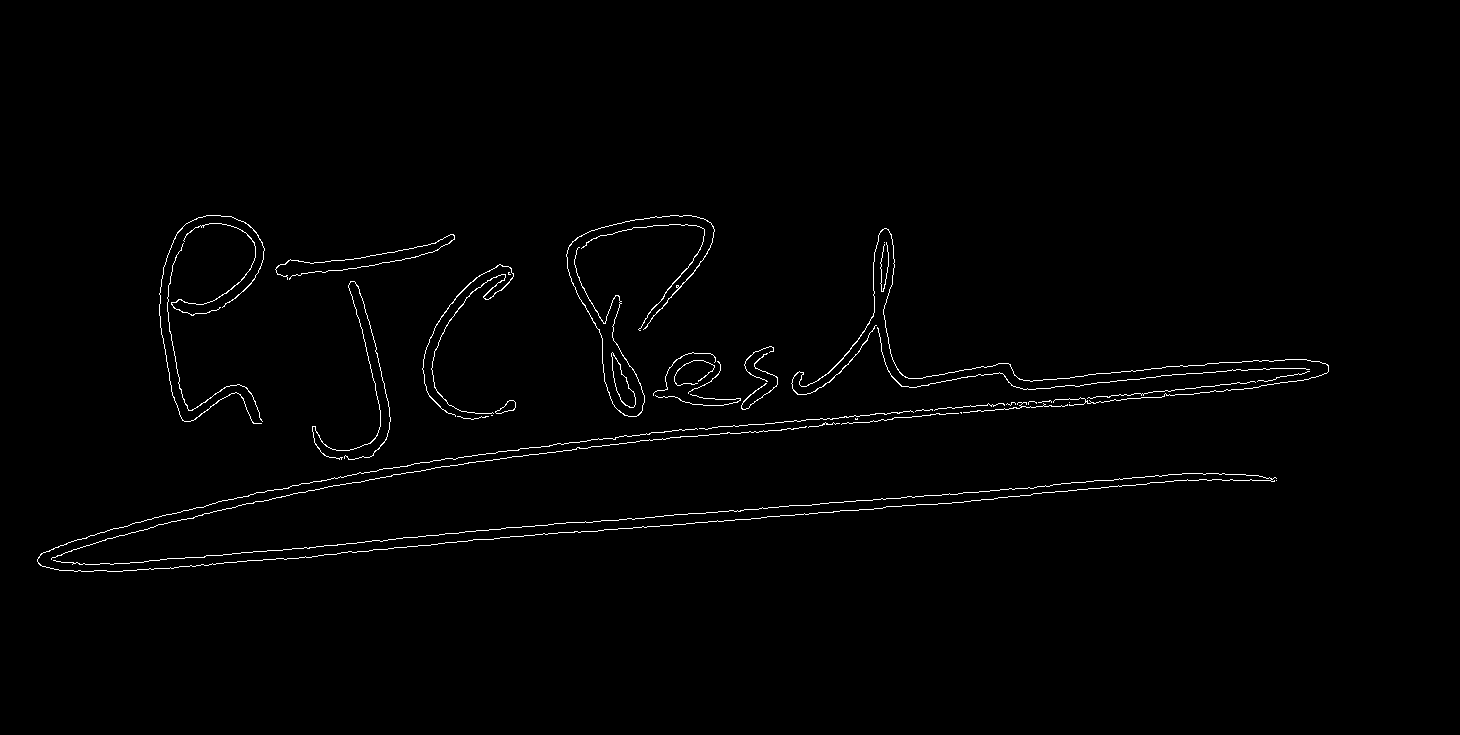 RJC Pesch